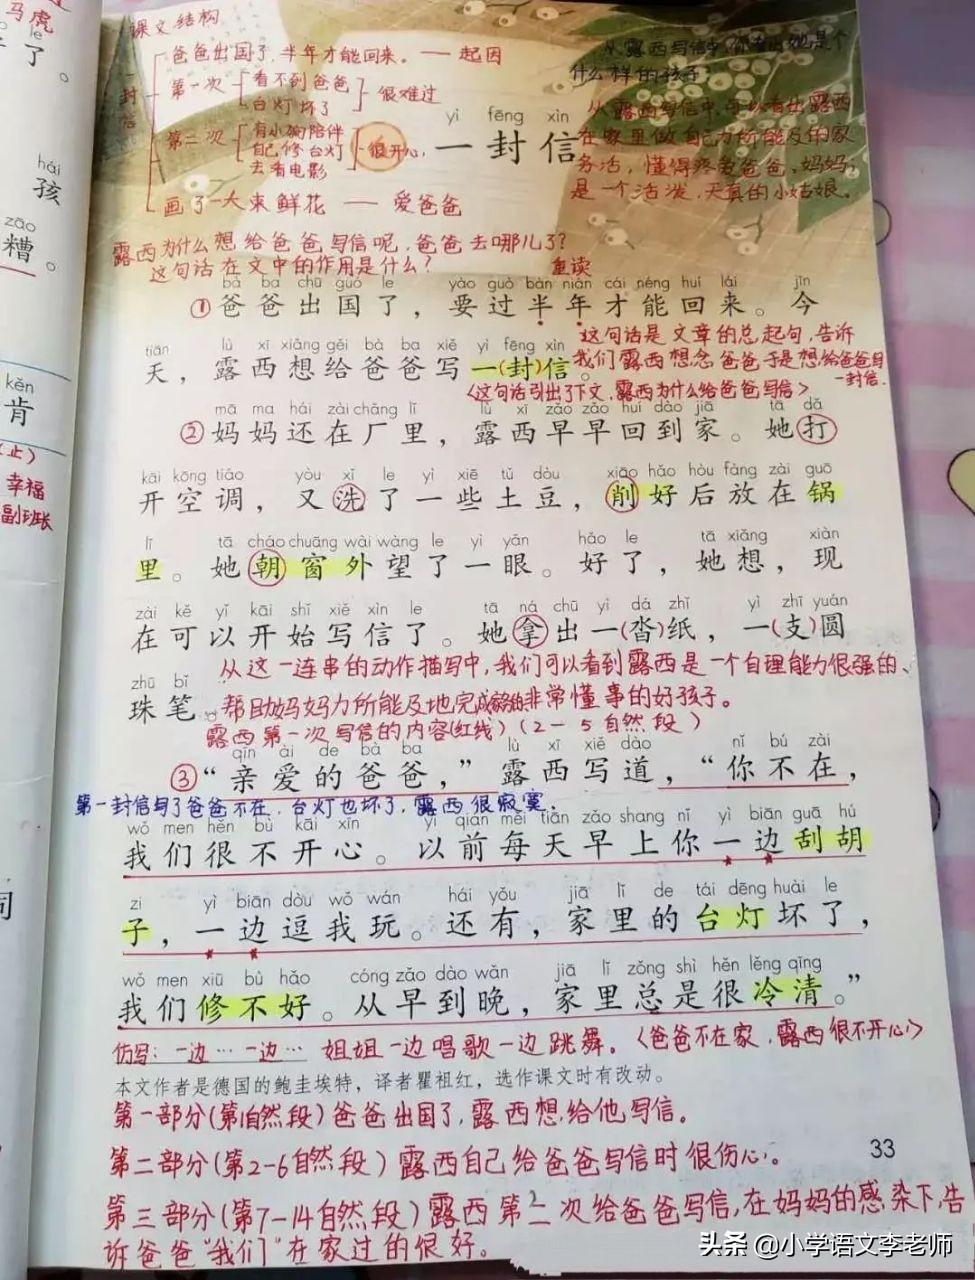 马虎
le
了。
hái
孩
zāo
糟。
kěn
肯
(止)
幸福
副班长
课文结构
一封信
爸爸出国了,半年才能回来。——起因
第一次 看不到爸爸 台灯坏了 很难过
第二次 有小狗陪伴 自己修台灯 去看电影 很开心
画了一大束鲜花 —— 爱爸爸
从露西写信中,你看出她是个
什么样的孩子
从露西写信中,可以看出露西
在家里做自己力所能及的家
务活,懂得疼爱爸爸、妈妈,
是一个活泼、天真的小姑娘。
yì fēng xìn
一封信
露西为什么想给爸爸写信呢,爸爸去哪儿了?
这句话在文中的作用是什么?
重读
bà ba chū guó le yào guò bàn nián cái néng huí lái jīn
①爸爸出国了,要过半年才能回来。今
这句话是文章的总起句,告诉
我们露西想念爸爸于是想给爸爸写
一封信.
tiān lù xī xiǎng gěi bà ba xiě yì fēng xìn
天,露西想给爸爸写一(封)信。
<这句话引出了下文,露西为什么给爸爸写信>
mā ma hái zài chǎng lǐ lù xī zǎo zǎo huí dào jiā tā dǎ
②妈妈还在厂里,露西早早回到家。她打
kāi kōng tiáo yòu xǐ le yì xiē tǔ dòu xiāo hǎo hòu fàng zài guō
开空调,又洗了一些土豆,削好后放在锅
lǐ tā cháo chuāng wài wàng le yì yǎn hǎo le tā xiǎng xiàn
里。她朝窗外望了一眼。好了,她想,现
zài kě yǐ kāi shǐ xiě xìn le tā ná chū yì dá zhǐ yì zhī yuán
在可以开始写信了。她拿出一(沓)纸,一(支)圆
从这一连串的动作描写中,我们可以看到露西是一个自理能力很强的、
zhū bǐ
珠笔。
帮助妈妈力所能及地完成家务的非常懂事的好孩子。
露西第一次写信的内容(红线)(2—5自然段)
qīn ài de bà ba lù xī xiě dào nǐ bú zài
③“亲爱的爸爸,”露西写道,“你不在,
第一封信写了爸爸不在,台灯也坏了,露西很寂寞.
wǒ men hěn bù kāi xīn yǐ qián měi tiān zǎo shang nǐ yì biān guā hú
我们很不开心。以前每天早上你一边刮胡
zi yì biān dòu wǒ wán hái yǒu jiā lǐ de tái dēng huài le
子,一边逗我玩。还有,家里的台灯坏了,
wǒ men xiū bù hǎo cóng zǎo dào wǎn jiā lǐ zǒng shì hěn lěng qīng
我们修不好。从早到晚,家里总是很冷清。”
仿写:一边…一边… 姐姐一边唱歌一边跳舞。<爸爸不在家,露西很不开心>
本文作者是德国的鲍圭埃特,译者瞿祖红,选作课文时有改动。
第一部分(第1自然段)爸爸出国了,露西想给他写信。
第二部分(第2-6自然段)露西自己给爸爸写信时很伤心。
33
第三部分(第7-14自然段)露西第二次给爸爸写信,在妈妈的感染下,告
诉爸爸“我们”在家过的很好。
头条 @小学语文李老师